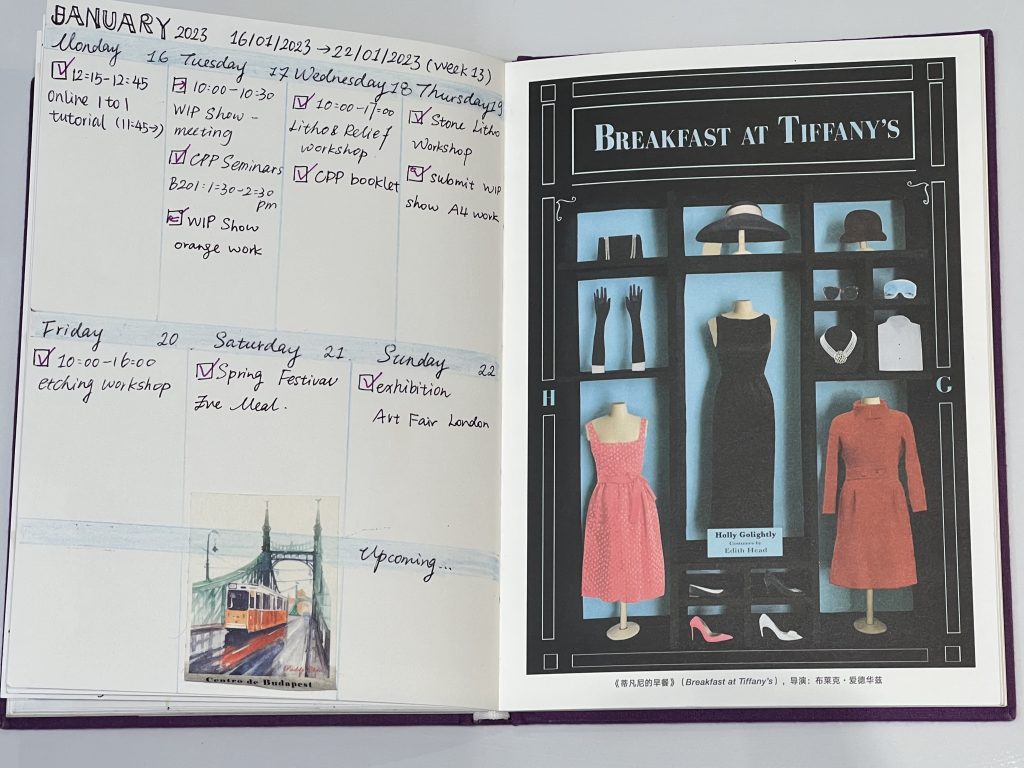 JANUARY 2023 16/01/2023 → 22/01/2023 (week 13)
Monday 16
12:15-12:45
Online 1 to 1
tutorial (11:45→)
Tuesday 17
10:00-10:30
WIP Show -
meeting
CPP Seminars
B201: 1:30-2:30
pm
WIP Show
orange work
Wednesday 18
10:00-17:00
Litho & Relief
workshop
CPP booklet
Thursday 19
Stone Litho
Workshop
submit WIP
show A4 work
Friday 20
10:00-16:00
etching workshop
Saturday 21
Spring Festival
Eve Meal.
Sunday 22
exhibition
Art Fair London
Upcoming...
Centro de Budapest
BREAKFAST AT TIFFANY'S
H G
Holly Golightly
Costumes by
Edith Head
《蒂凡尼的早餐》(Breakfast at Tiffany's), 导演：布莱克·爱德华兹